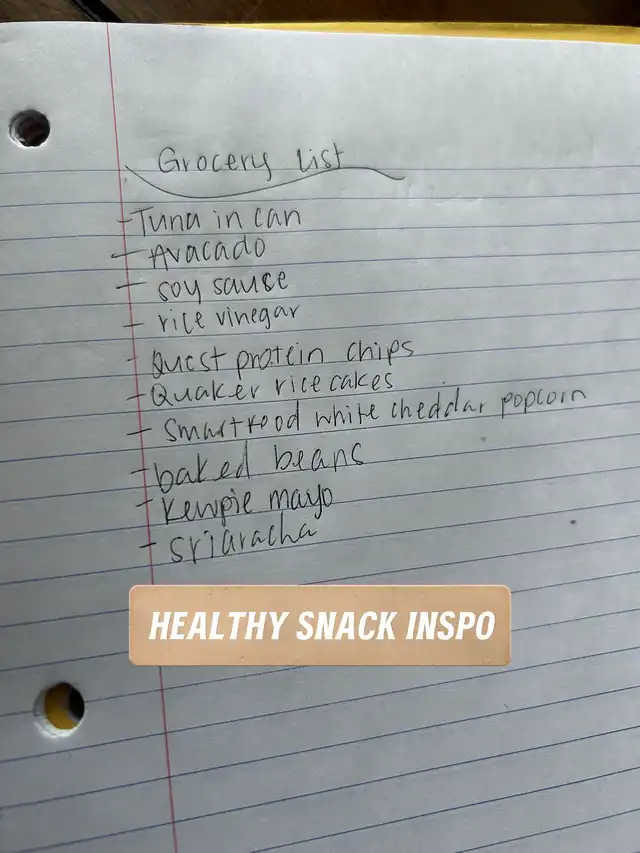 Grocery List
- Tuna in can
- Avacado
- soy sauce
- rice vinegar
- Quest protein chips
- Quaker rice cakes
- Smartfood white cheddar popcorn
- baked beans
- Kewpie mayo
- sriaracha
HEALTHY SNACK INSPO